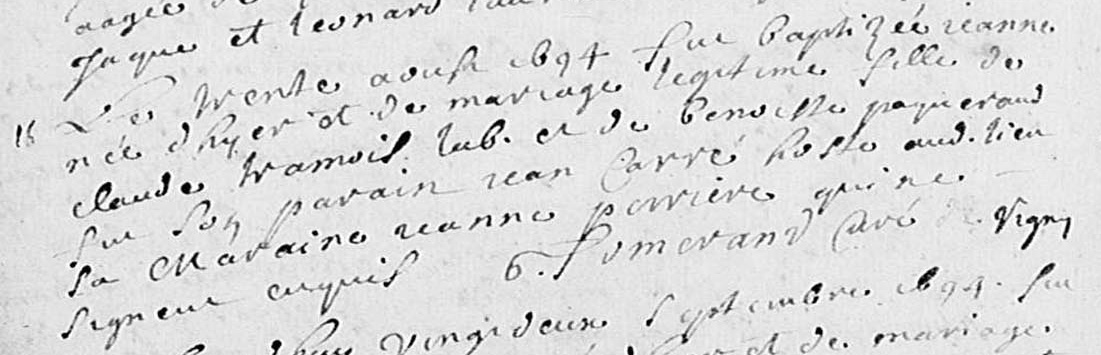 aagée de
Jaque et Leonard
18 Le trente aoust 1694 fut baptizée jeanne
née d'hyer et de mariage legitime fille de
claude tramois lab. et de benoiste paquerand
fut son parain jean Carré hoste aud. lieu
sa Maraine jeanne perriere qui ne
signent enquis G. Pomerand Curé de Vigny
d'huy vingt deux septembre 1694. fut
et de mariage